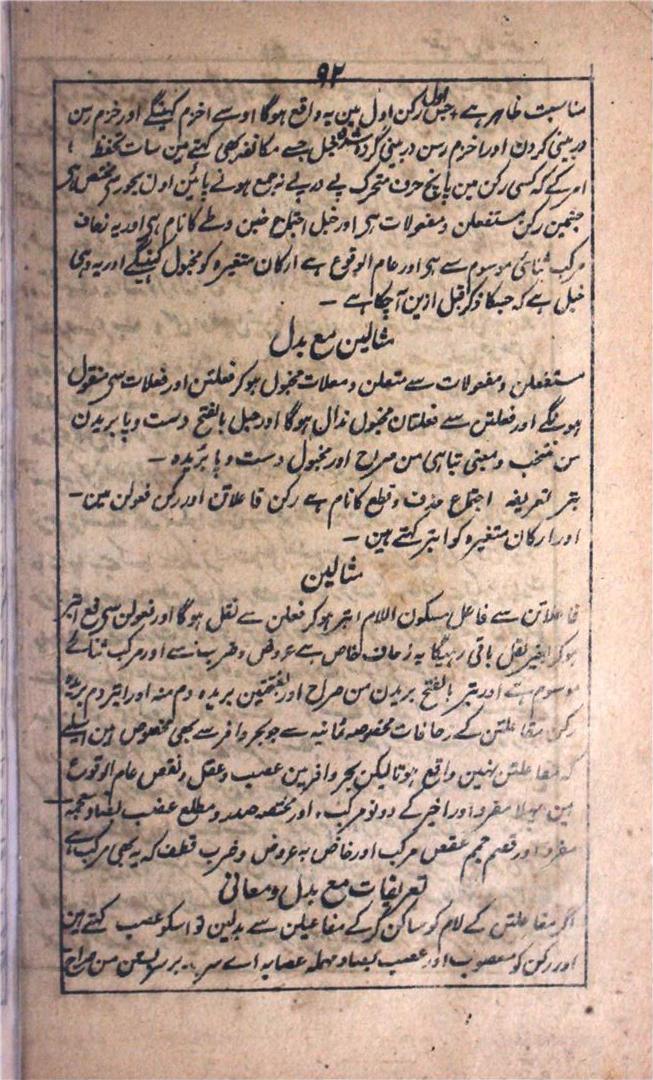 ۹۲
مناسبت ظاہر ہے جس رکن اول مین یہ واقع ہوگا اوسے اخزم کہینگے اور خزم رسن
در بینی کردن اور اخزم رسن در بینی کردہ شدہ خبل جسے مکانفہ بھی کہتے ہین سات تحفظ
امر کے کہ کسی رکن مین پانچ حرف متحرک پے در پے نہ جمع ہونے پائین اون بحور سی مختص ہی
جنمین رکن مستفعلن و مفعولات ہی اور خبل اجتماع خبن و طے کا نام ہی اور یہ زحاف
مرکب ثنائی موسوم سے ہی اور عام الوقوع ہے ارکان متغیرہ کو مخبول کہینگے اور یہ وہی
خبل ہے کہ جسکا ذکر قبل ازین آچکا ہے ۔
مثالین مع بدل
مستفعلن و مفعولات سے متعلن و معلات مخبول ہوکر فعلتن اور فعلات سی منقول
ہونگے اور فعلتن سے فعلتان مخبول مذال ہوگا اور خبل بالفتح دست و پا بریدن
من منتخب و معنی تباہی من صراح اور مخبول دست و پا بریدہ ۔
بتر تعریفہ اجتماع حذف و قطع کا نام ہے رکن فاعلاتن اور رکن فعولن مین ۔
اور ارکان متغیرہ کو ابتر کہتے ہین ۔
مثالین
فاعلاتن سے فاعل بسکون اللام ابتر ہوکر فعلن سے نقل ہوگا اور فعولن سی فع ابتر
ہوکر بغیر نقل باقی رہیگا یہ زحاف خاص ہے عروض و ضرب سے اور مرکب ثنائے
موسوم ہے اور بتر بالفتح بریدن من صراح اور بفتحتین بریدہ دم منہ اور ابتر دم بریدہ
رکن مفاعلتن کے زحافات مخصوصہ ثمانیہ سے جو بحر وافر سے بھی مخصوص ہین اسلیے
کہ مفاعلتن نہین واقع ہوتا لیکن بحر وافر مین عصب و عقل و نقص عام الوقوع
ہین پہلا مفرد اور اخیر کے دونو مرکب، اور مختصہ صدر و مطلع عضب بضاد معجمہ
مفرد اور قصم جمم عقص مرکب اور خاص بہ عروض و ضرب قطف کہ یہ بھی مرکب ہے
تعریفات مع بدل و معانی
اگر مفاعلتن کے لام کو ساکن کرکے مفاعیلن سے بدلین تو اسکو عصب کہتے ہین
اور رکن کو معصوب اور عصب بصاد مہملہ عصابہ اے سر بر بستن من صراح